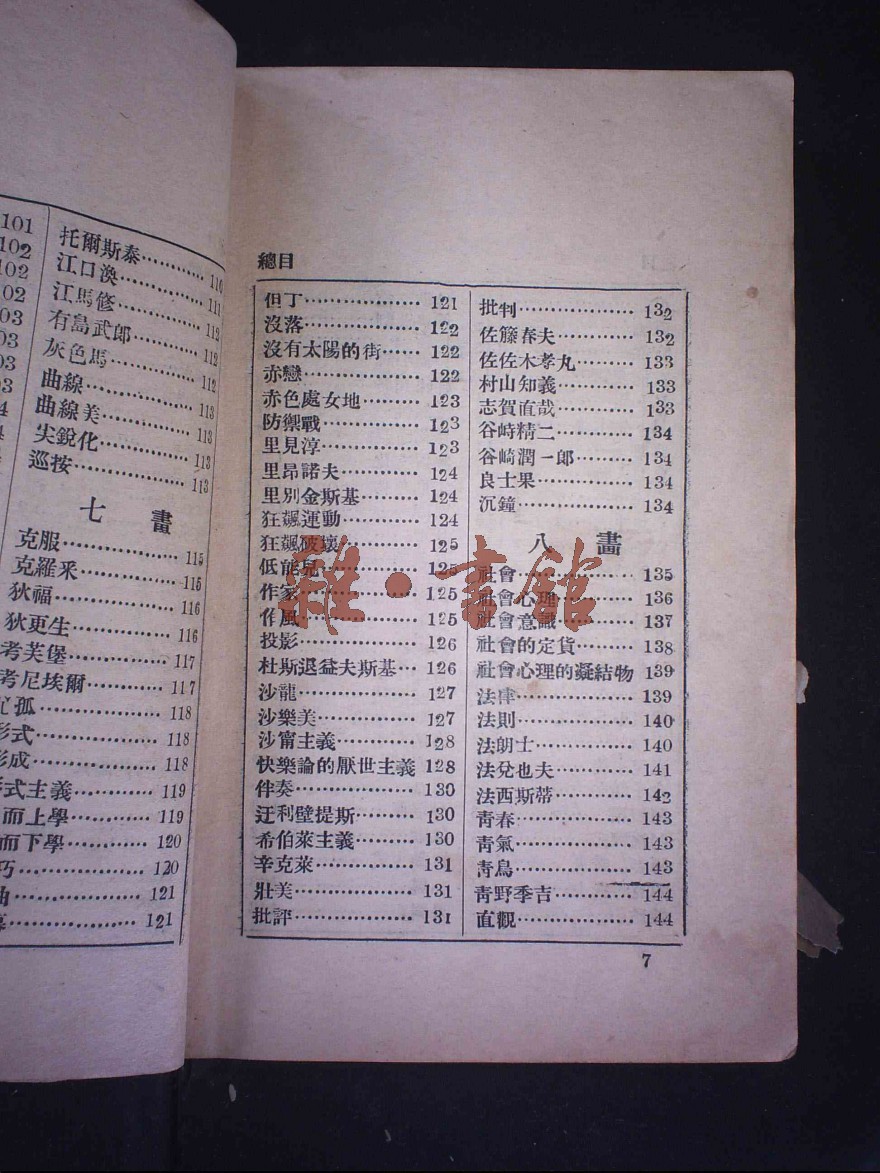 101
102
102
02
03
03
03
托爾斯泰………… 110
江口渙………… 111
江馬修………… 112
有島武郎………… 112
灰色馬………… 112
曲線………… 113
曲線美………… 113
尖銳化………… 113
巡按………… 113
七 畫
克服………… 115
克羅釆………… 115
狄福………… 116
狄更生………… 116
考芙堡………… 117
考尼埃爾………… 117
孤………… 118
形式………… 118
形成………… 118
形式主義………… 119
而上學………… 119
而下學………… 120
巧………… 120
曲………… 121
………… 121
總目
但丁………… 121
沒落………… 122
沒有太陽的街…… 122
赤戀………… 122
赤色處女地…… 123
防禦戰………… 123
里見淳………… 123
里昂諾夫………… 124
里別金斯基…… 124
狂飆運動………… 124
狂飆破壞………… 125
低能兒………… 125
作家………… 125
作風………… 125
投影………… 126
杜斯退益夫斯基… 126
沙龍………… 127
沙樂美………… 127
沙甯主義………… 128
快樂論的厭世主義 128
伴奏………… 130
迂利壁提斯…… 130
希伯萊主義…… 130
辛克萊………… 131
壯美………… 131
批評………… 131
批判………… 132
佐籐春夫………… 132
佐佐木孝丸…… 133
村山知義………… 133
志賀直哉………… 133
谷崎精二………… 134
谷崎潤一郎…… 134
良士果………… 134
沉鐘………… 134
八 畫
社會………… 135
社會心理………… 136
社會意識………… 137
社會的定貨…… 138
社會心理的凝結物 139
法律………… 139
法則………… 140
法朗士………… 140
法兌也夫………… 141
法西斯蒂………… 142
靑春………… 143
靑氣………… 143
靑鳥………… 143
靑野季吉………… 144
直觀………… 144
7
雜·書館